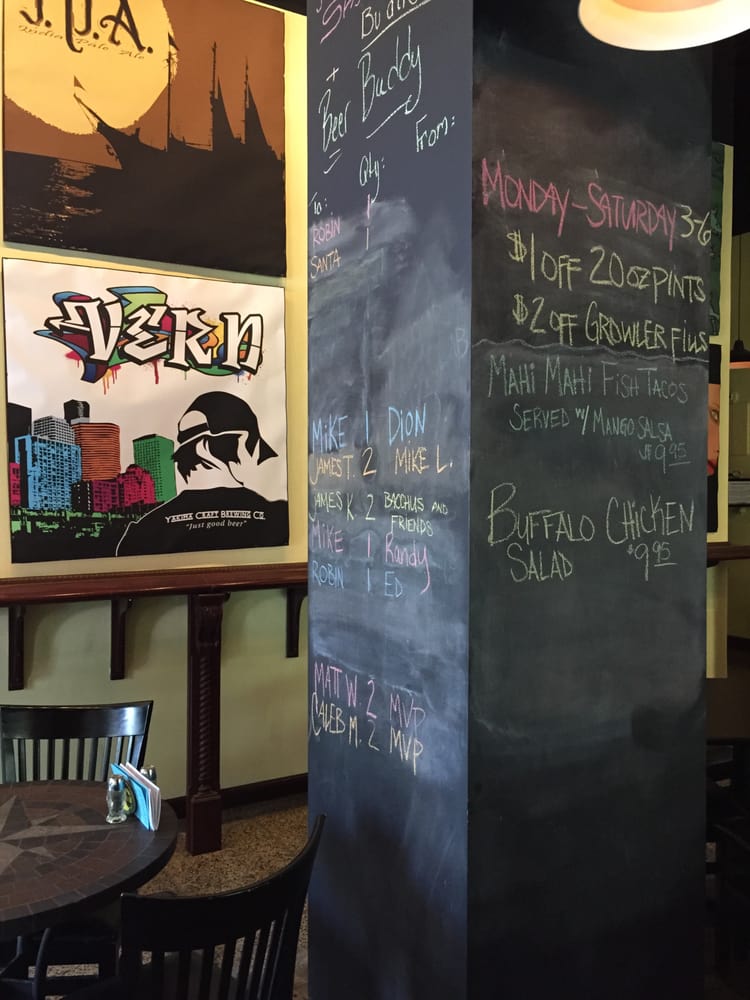 I.P.A.
India Pale Ale
VERN
YAKIMA CRAFT BREWING CO.
"Just good beer"
+
Beer Buddy
To: Qty: From:
ROBIN 1
SANTA 1
MIKE 1 DION
JAMES T. 2 MIKE L.
JAMES K. 2 BACCHUS AND
FRIENDS
MIKE 1 Randy
ROBIN 1 ED
MATT W. 2 MVP
CALEB M. 2 MVP
MONDAY-SATURDAY 3-6
$1 OFF 20 OZ PINTS
$2 OFF GROWLER FILLS
MAHI MAHI FISH TACOS
SERVED W/ MANGO SALSA
$9.95
BUFFALO CHICKEN
SALAD $9.95